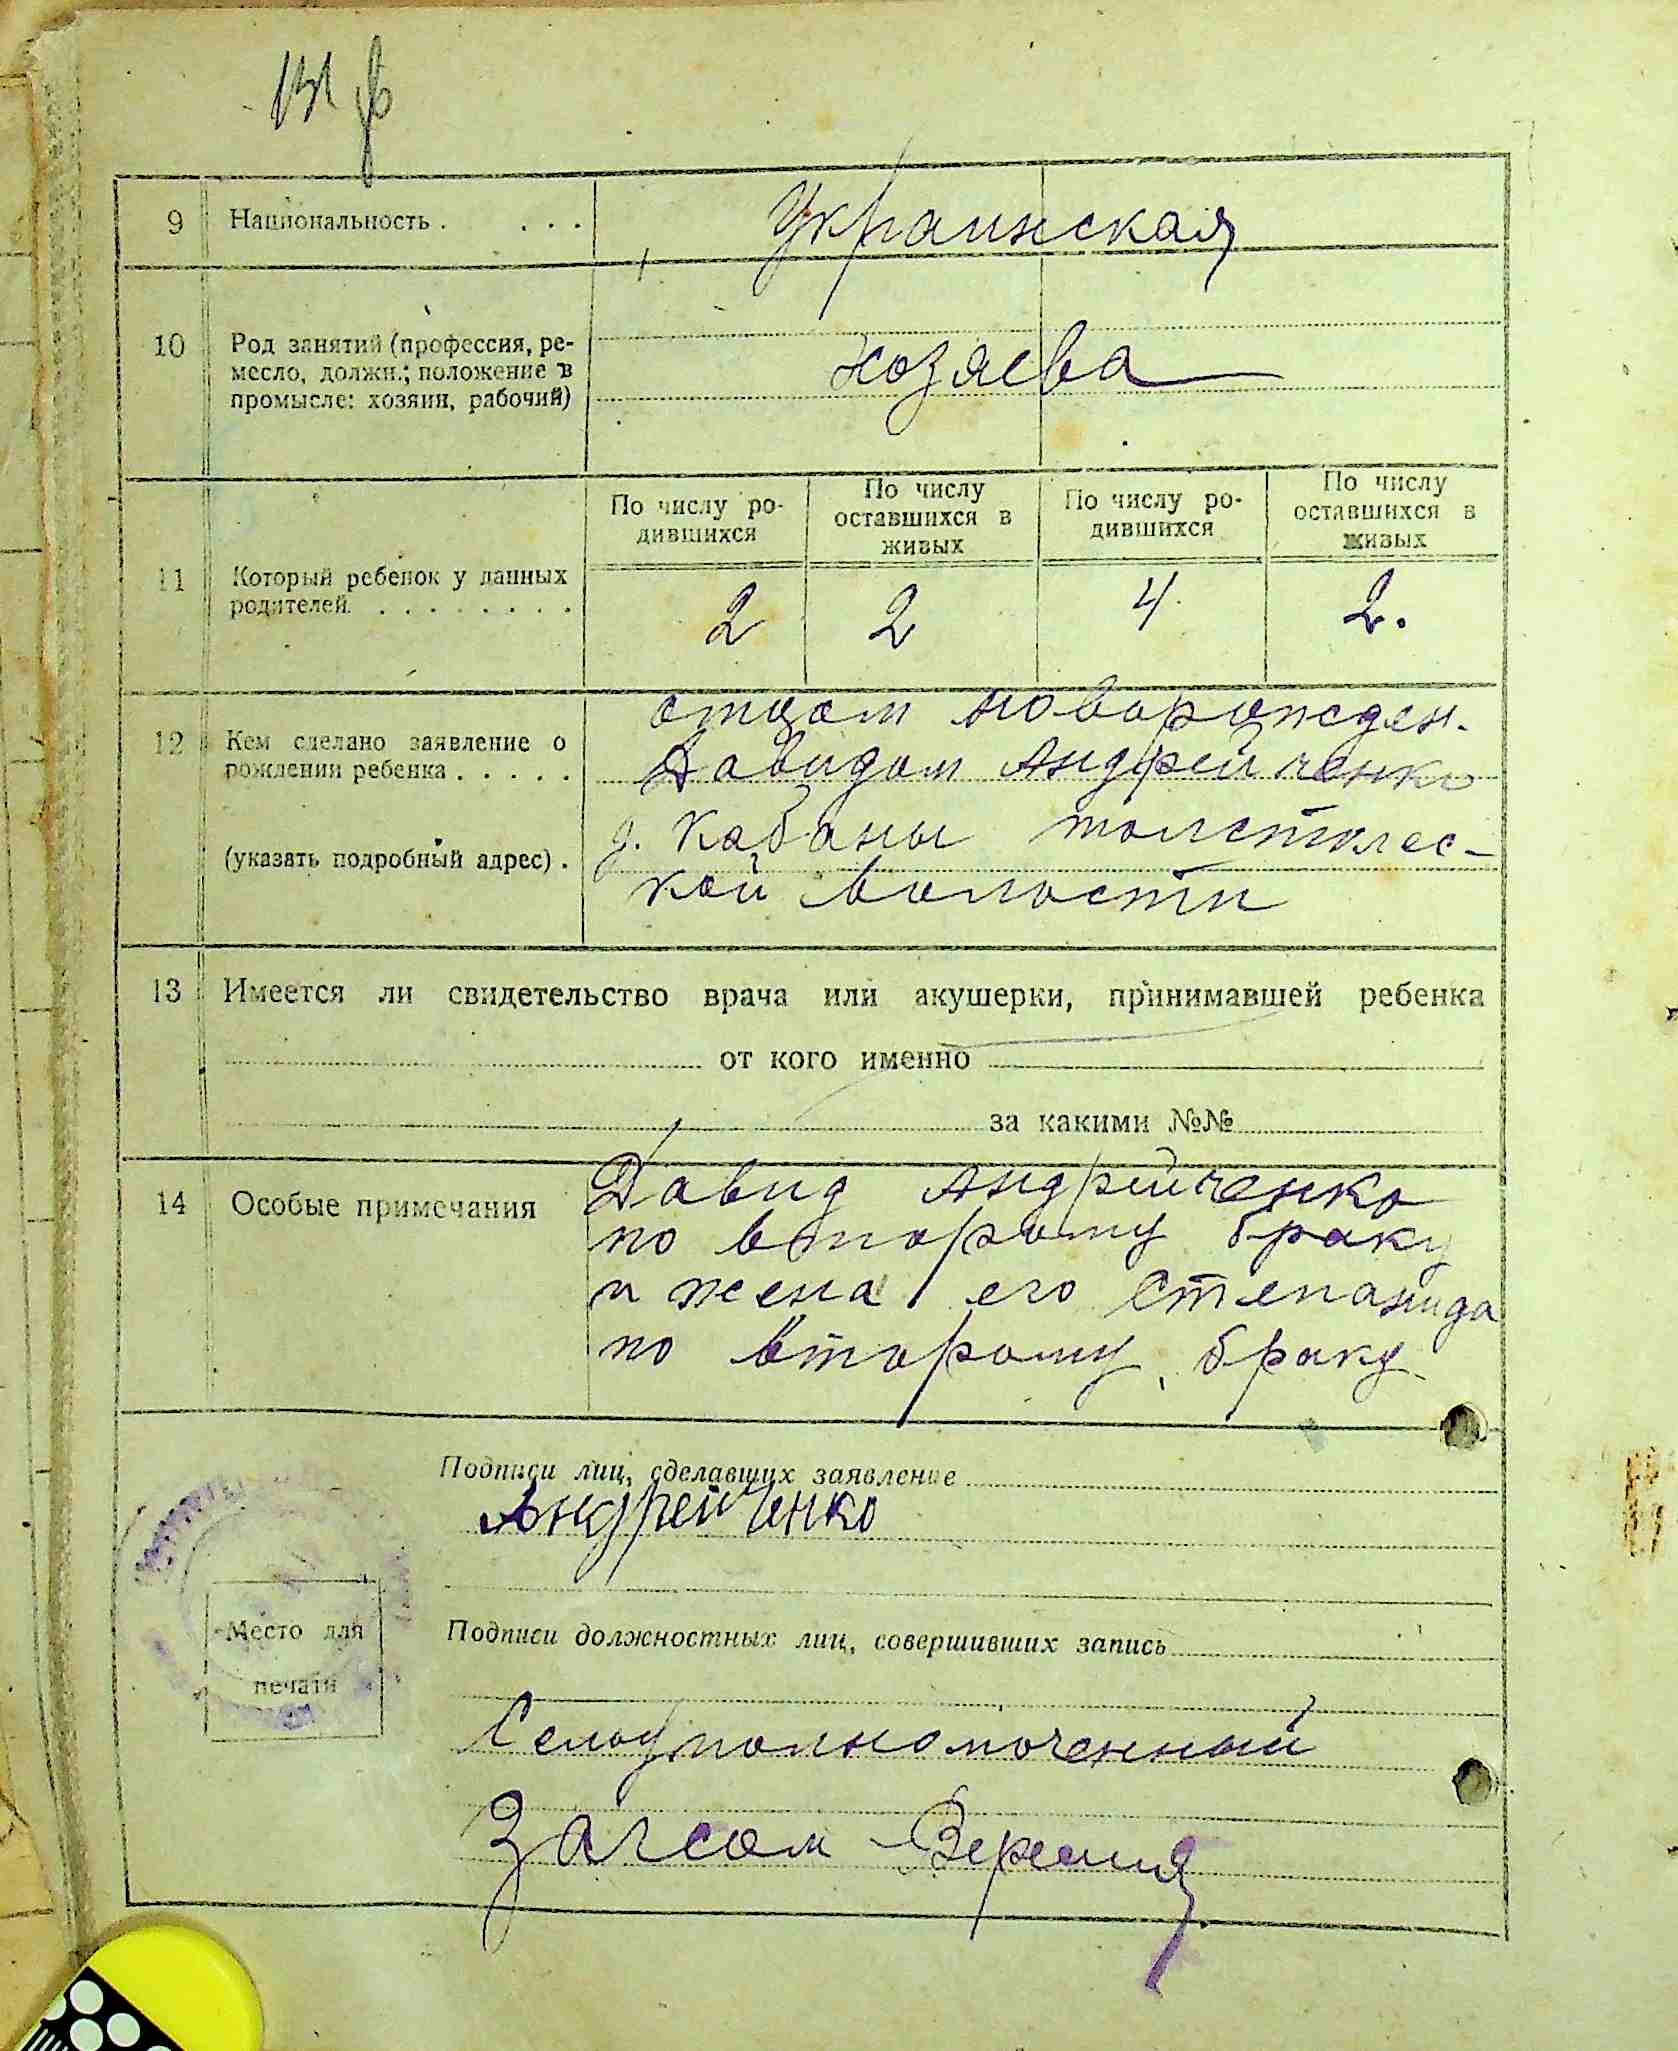 9 Национальность . . . . Украинская
10 Род занятий (профессия, ре-
месло, должн.; положение в
промысле: хозяин, рабочий)
хозяева
11 Который ребенок у данных
родителей . . . . . . . .
По числу ро-
дившихся
По числу
оставшихся в
живых
По числу ро-
дившихся
По числу
оставшихся в
живых
2 2 4 2.
12 Кем сделано заявление о
рождении ребенка . . . . .
(указать подробный адрес) .
отцом новорожден.
Давидом Андрейченко
д. Кабаны толстолес-
кой волости
13 Имеется ли свидетельство врача или акушерки, принимавшей ребенка
от кого именно
за какими №№
14 Особые примечания
Давид Андрийченко
по второму браку
и жена его Степанида
по второму браку
Подписи лиц, сделавших заявление
Андрейченко
Место для
печати
Подписи должностных лиц, совершивших запись
Селоуполномоченный
Загсом